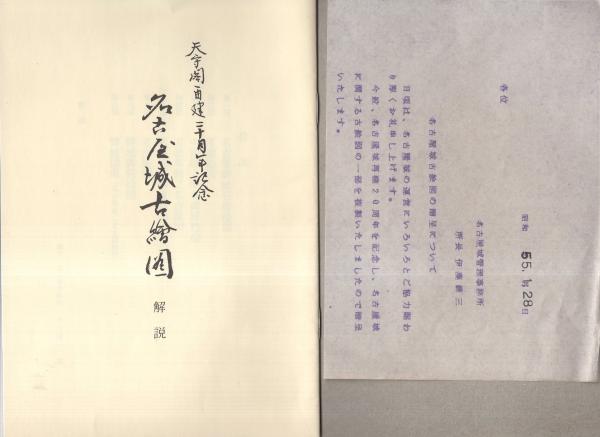 天守閣再建二十周年記念
名古屋城古繪図
解説
昭和 55.1月28日
各位
名古屋城管理事務所
所長 伊藤鎌三
名古屋城古絵図の贈呈について
日頃は、名古屋城の運営にいろいろとご協力賜わ
り厚くお礼申し上げます。
今般、名古屋城再建20周年を記念し、名古屋城
に関する古絵図の一部を複製いたしましたので贈呈
いたします。